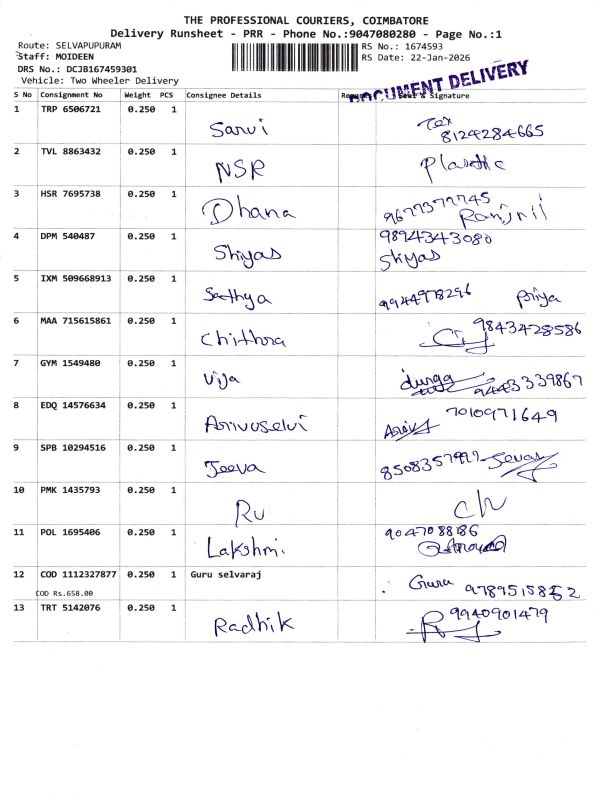 THE PROFESSIONAL COURIERS, COIMBATORE
Delivery Runsheet - PRR - Phone No.:9047080280 - Page No.:1
Route: SELVAPUPURAM
RS No.: 1674593
Staff: MOIDEEN
RS Date: 22-Jan-2026
DRS No.: DCJB167459301
Vehicle: Two Wheeler Delivery
DOCUMENT DELIVERY
S No Consignment No Weight PCS Consignee Details & Signature
1 TRP 6506721 0.250 1 Sarvi 8124284665
2 TVL 8863432 0.250 1 NSR
3 HSR 7695738 0.250 1 Dhana Ranjnii
4 DPM 540487 0.250 1 Shiyas 9894343080
Shiyas
5 IXM 509668913 0.250 1 Sathya 9944978296 Priya
6 MAA 715615861 0.250 1 Chithra 9843428586
7 GYM 1549480 0.250 1 Vija durga 9443339867
8 EDQ 14576634 0.250 1 Arivuselvi 7010971649
9 SPB 10294516 0.250 1 Jeeva
10 PMK 1435793 0.250 1 Ru
11 POL 1695406 0.250 1 Lakshmi 9047088186
12 COD 1112327877 0.250 1 Guru selvaraj Guru
COD Rs.658.00
13 TRT 5142076 0.250 1 Radhik 9940901479